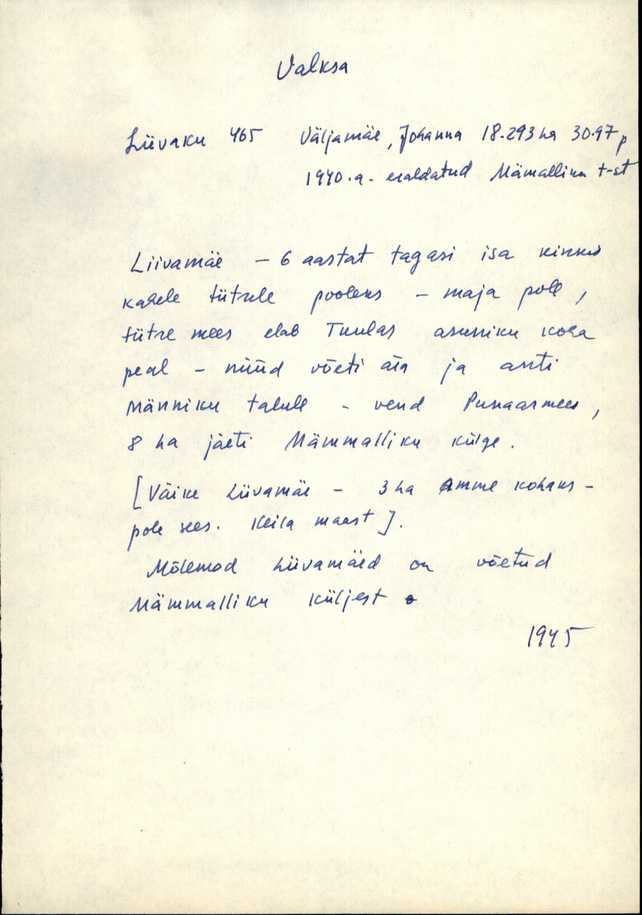 Valksa
Liivaku 465 Väljamäe, Johanna 18.293 ha 30.97 p
1940.a. eraldatud Mämalliku t-st
Liivamäe – 6 aastat tagasi isa kinkis
kahele tütrele pooleks – maja pole,
tütre mees elab Tuulas asuniku koha
peal – nüüd võeti ära ja anti
Männiku talule – vend Punaarmees,
8 ha jäeti Mämmalliku külge.
[Väike Liivamäe – 3 ha Amme kohaks –
pole sees. Keila maast].
Mõlemad Liivamäed on võetud
Mämmalliku küljest.
1945